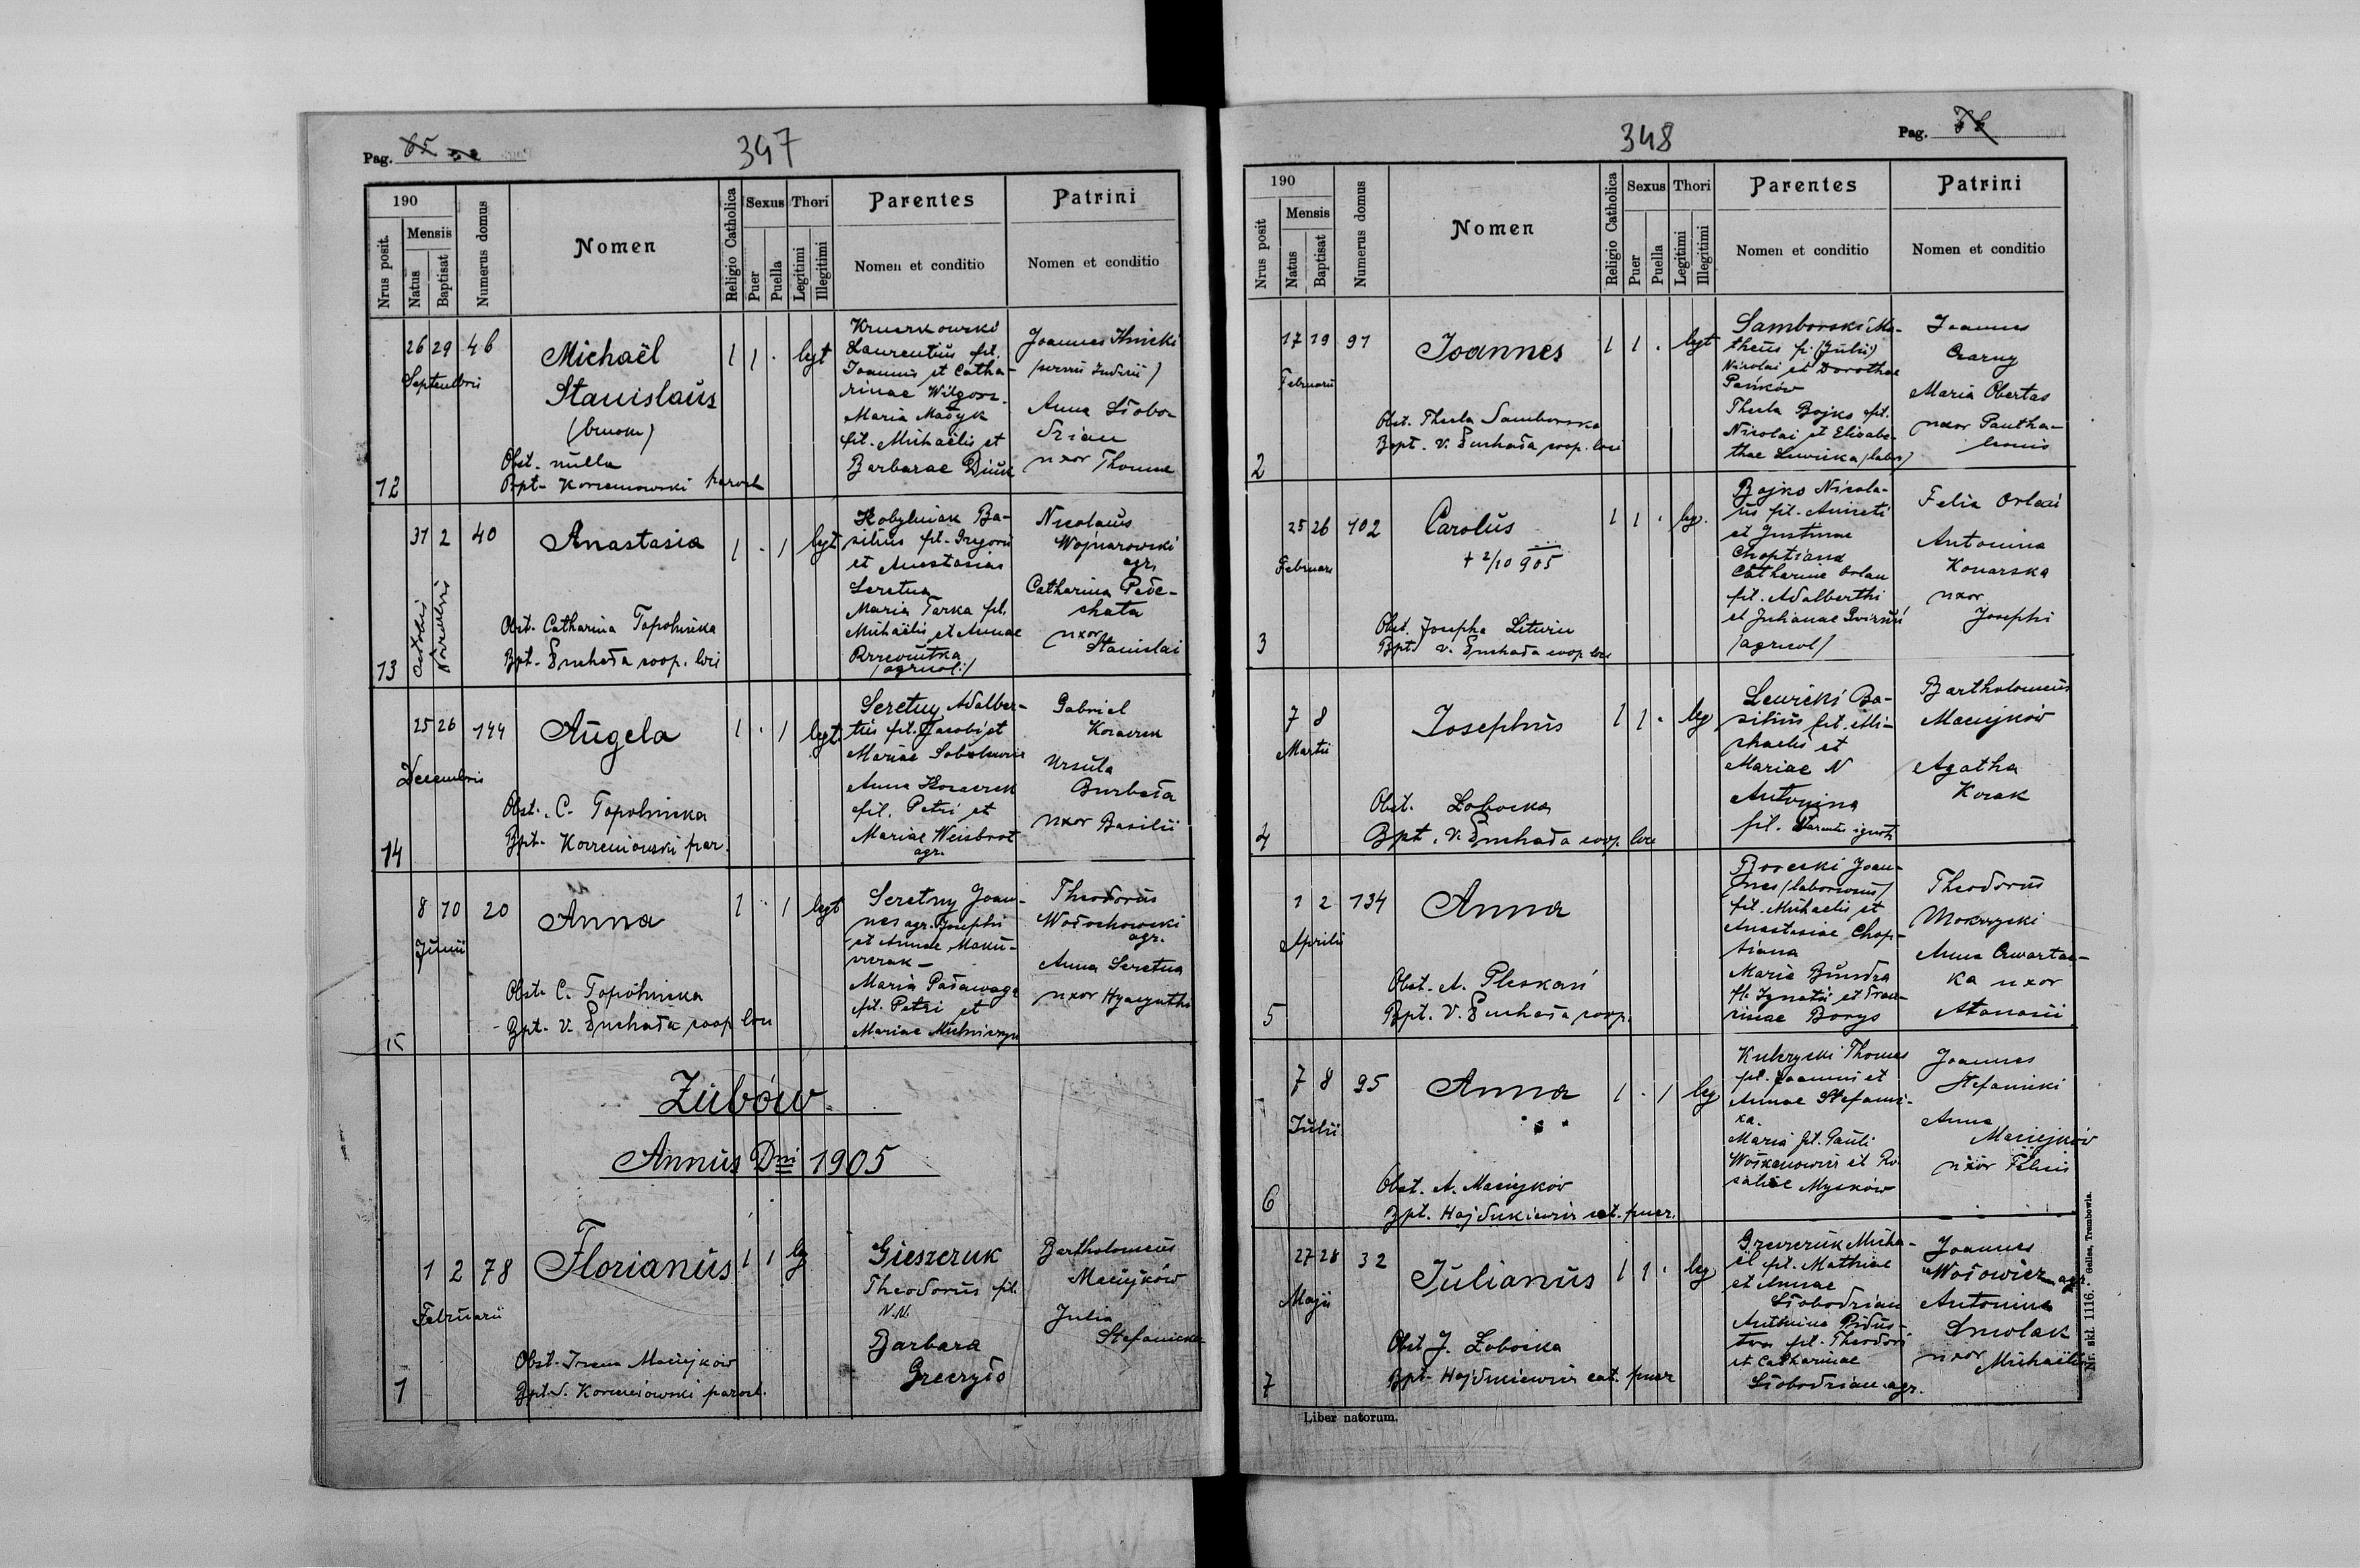 Pag. 65
347
190
Nrus posit.
Mensis
Natus
Baptisat
Numerus domus
Nomen
Religio Catholica
Sexus
Puer
Puella
Thori
Legitimi
Illegitimi
Parentes
Nomen et conditio
Patrini
Nomen et conditio
12
26 29 46
Septembris
Michaël
Stanislaüs
Obst. nulla
Bpt. Korzeniowski paroch
1 1 . legt
Laurentius fil.
Joannis et Catha-
rinae Wilgosz.
Maria
fil. Michaëlis et
Barbarae
Joannes
Anna Słobo-
dzian
uxor Thomae
13
31 2 40
Octobris
Novembris
Anastasia
Obst. Catharina Topolnicka
Bpt. Suchoda coop. loci
1 . 1 legt
Kobylniak Ba-
silius fil. Gregorii
et Anastasiae
Seretna
Maria Tarka fil.
Michaëlis et Annae
(agricol.)
Nicolaus
Wojnarowski
agr.
Catharina
uxor
Stanislai
14
25 26 144
Decembris
Angela
Obst. C. Topolnicka
Bpt. Korzeniowski par.
1 . 1 legt
Seretny Adalber-
tus fil. Jacobi et
Mariae
Anna
fil. Petri et
Mariae Weisbrot
agr.
Gabriel
Ursula
uxor Basilii
15
8 10 20
Junii
Anna
Obst. C. Topolnicka
Bpt. V. Suchoda coop loci
1 . 1 legt
Seretny Joan-
nes agr. Josephi
et Annae
Maria
fil. Petri et
Mariae
Theodorus
Wołochowski
agr.
Anna Seretna
uxor Hyacynthi
Zubów
Annus Dni 1905
1
1 2 78
Februarii
Florianus
Obst. Maciejków
Bpt. Korzeniowski paroch.
1 1 lg
Gieszczuk
Theodorus fil.
N.N.
Barbara
Bartholomeus
Maciejków
Julia
Stefanicka
348
Pag.
190
Nrus posit
Mensis
Natus
Baptisat
Numerus domus
Nomen
Religio Catholica
Sexus
Puer
Puella
Thori
Legitimi
Illegitimi
Parentes
Nomen et conditio
Patrini
Nomen et conditio
2
17 19 91
Februarii
Joannes
Obst. Thecla Samborska
Bpt. V. Suchoda coop. loci
1 1 . legt
Samborski Ma-
theus f. (Julii)
Nicolai et Dorotheae
Pańków
Thecla Bojko fil.
Nicolai et Elisabe-
thae Lewicka (labor)
Joannes
Czarny
Maria Obertas
uxor Pantha-
leonis
3
25 26 102
Februarii
Carolus
+ 2/10 905
Obst. Josepha Litwin
Bpt. V. Suchoda coop loci
1 1 . lg.
Bojko Nicola-
us fil. Aniceti
et Justinae
Choptiana
Catharina Orlan
fil. Adalberthi
et Julianae
(agricol)
Felix
Antonina
Konarska
uxor
Josephi
4
7 8
Martii
Josephus
Obst. Łobocka
Bpt. V. Suchoda coop. loci
1 1 . leg
Lewicki Ba-
silius fil. Mi-
chaelis et
Mariae N
Antonina
fil.
Bartholomeus
Maciejków
Agatha
Kozak
5
1 2 134
Aprilis
Anna
Obst. A. Pleskań
Bpt. V. Suchoda coop.
Borecki Joan-
nes (laboriosus)
fil. Michaelis et
Anastasiae Chop-
tiana
Maria
fil. Ignatii et Fran-
ciscae Borys
Theodorus
Mokrzycki
Anna Czwartac-
ka uxor
Atanasii
6
7 8 95
Julii
Anna
Obst. A. Maciejków
Bpt. Hajdukiewicz cat. puer.
1 . 1 leg
Thomas
fil. Joannis et
Annae Stefanic-
ka.
Maria fil. Pauli
et Ro-
saliae Myćków
Joannes
Stefanicki
Anna
Maciejków
uxor Felicis
7
27 28 32
Maji
Julianus
Obst. J. Łobocka
Bpt. Hajdukiewicz cat. puer
1 1 . leg
Micha-
el fil. Mathiae
et Annae
Słobodzian
Antonina
fil. Theodori
et Catharinae
Słobodzian agr.
Joannes
Wołowicz agr.
Antonina
Smolak
uxor Michaëlis
Liber natorum.
Nr. skl. 1116. Gelles, Trembowla.